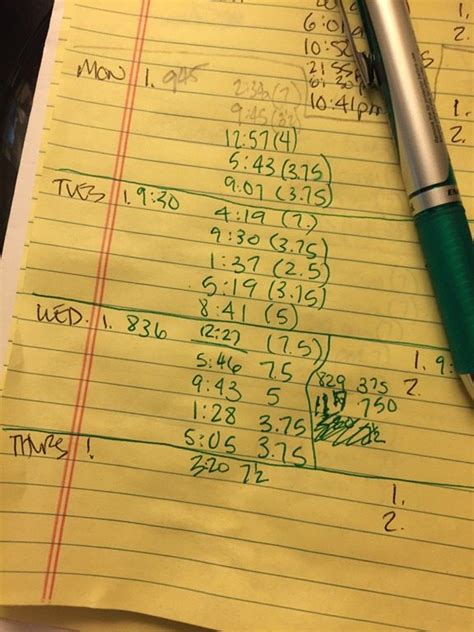 6:01
10:52
10:41pm
1.
2.
MON 1. 945
9:45
12:57 (4)
5:43 (3.75)
9:07 (3.75)
TUES 1. 9:30
4:19 (7.)
9:30 (3.75)
1:37 (2.5)
5:19 (3.75)
8:41 (5)
WED. 1. 836
12:27 (7.5)
5:46 7.5
9:43 5
1:28 3.75
5:05 3.75
1. 9:
829 375 2.
750
THURS 1
320 7½
1.
2.